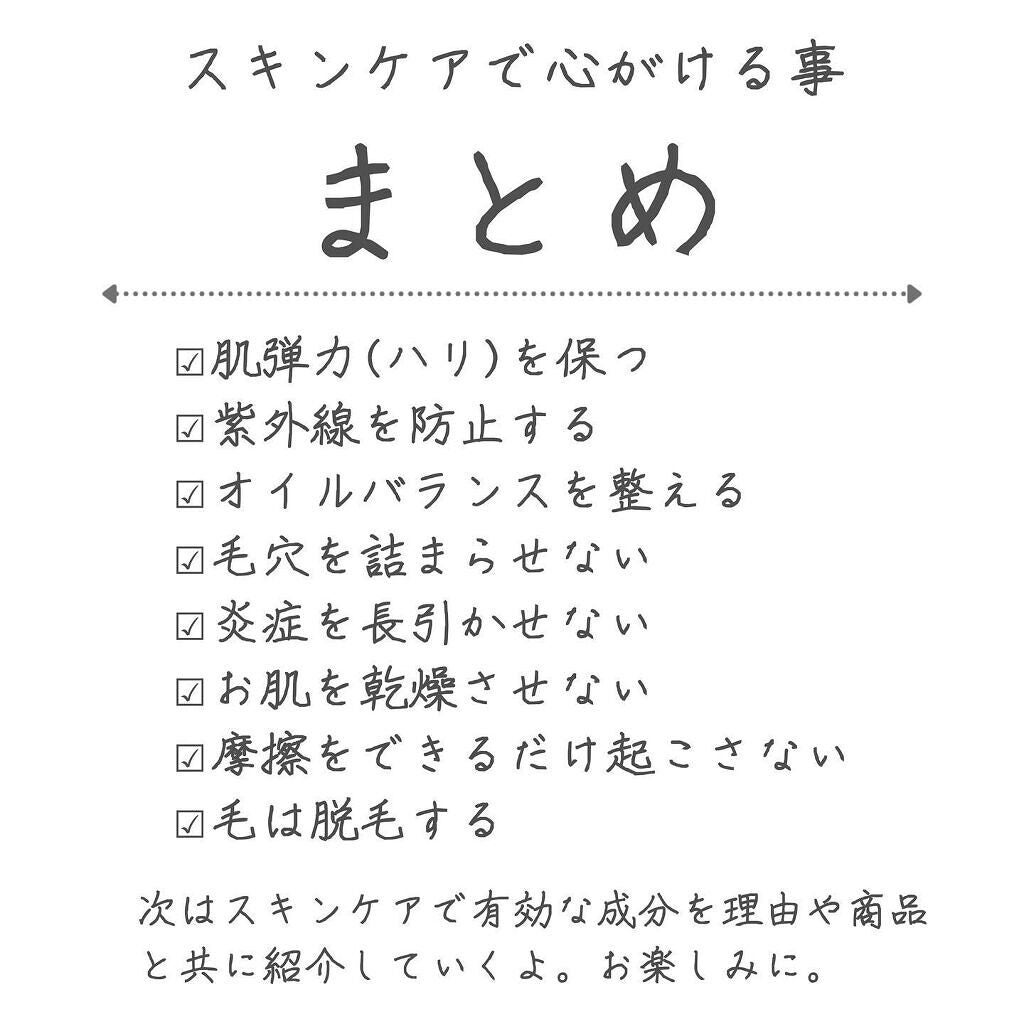 スキンケアで心がける事
まとめ
☑肌弾力(ハリ)を保つ
☑紫外線を防止する
☑オイルバランスを整える
☑毛穴を詰まらせない
☑炎症を長引かせない
☑お肌を乾燥させない
☑摩擦をできるだけ起こさない
☑毛は脱毛する
次はスキンケアで有効な成分を理由や商品
と共に紹介していくよ。お楽しみに。